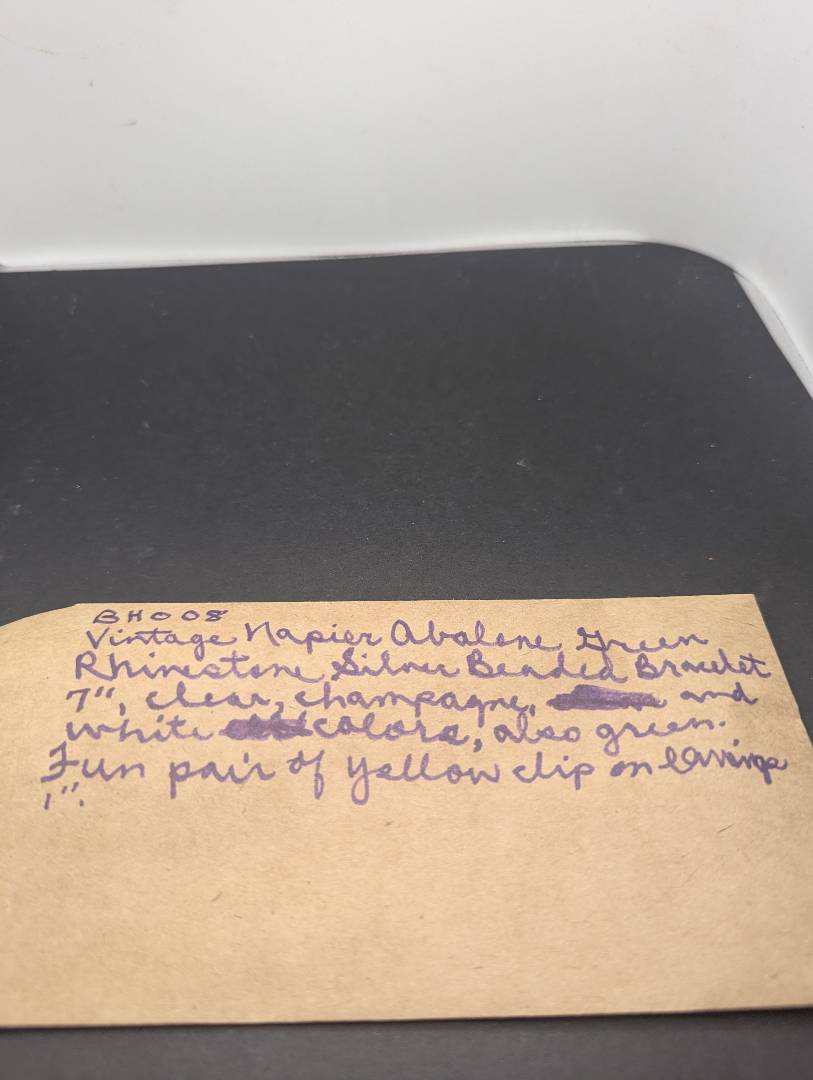 BH008
Vintage Napier Abalone Green
Rhinestone Silver Beaded Bracelet
7", clear, champagne, and
white colors, also green.
Fun pair of yellow clip on earrings
1".